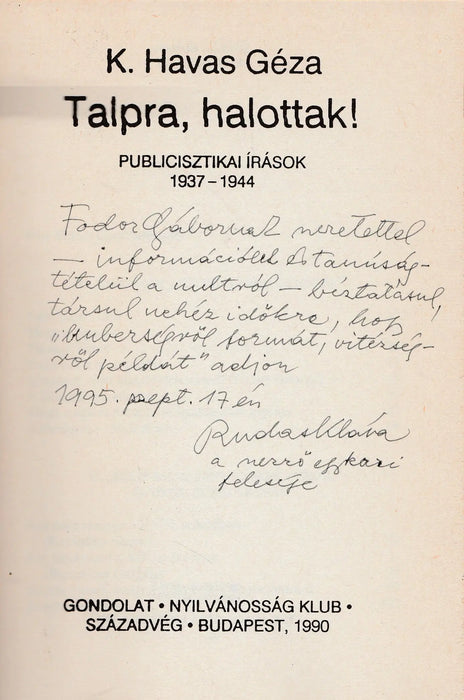 K. Havas Géza
Talpra, halottak!
PUBLICISZTIKAI ÍRÁSOK
1937 – 1944
Fodor Gábornak szeretettel
– információul és tanúság-
tételül a multról – biztatásul,
társul nehéz időkre, hogy
„emberségről formát, vitézség-
ről példát" adjon
1995. szept. 17 én
Rudas Klára
a szerző egykori
felesége
GONDOLAT • NYILVÁNOSSÁG KLUB •
SZÁZADVÉG • BUDAPEST, 1990